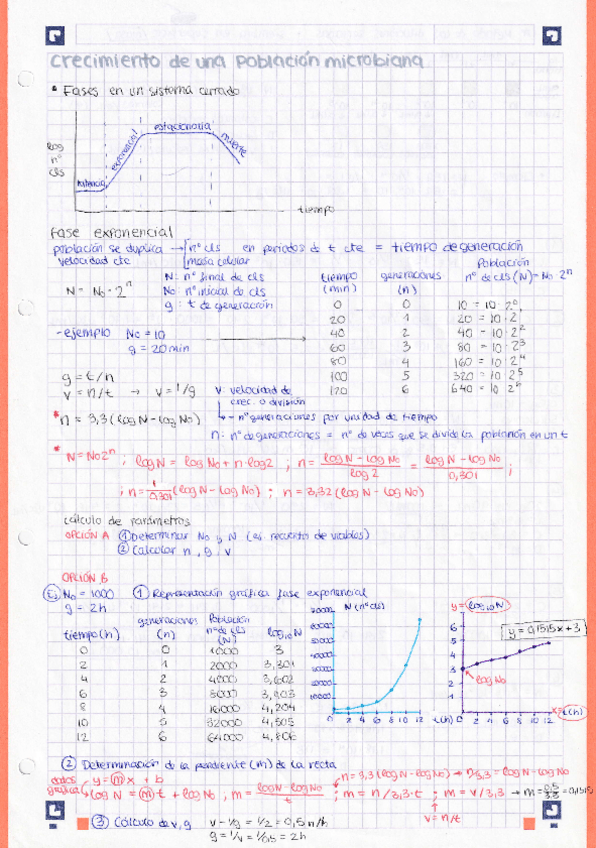 Crecimiento de una población microbiana
* Fases en un sistema cerrado
log nº cls
latencia exponencial estacionaria muerte
tiempo
Fase exponencial
población se duplica → nº cls en periodos de t cte = tiempo de generación
velocidad cte masa celular
N = N₀ · 2ⁿ
N: nº final de cls
N₀: nº inicial de cls
g: t de generación
- ejemplo N₀ = 10
g = 20 min
tiempo (min) generaciones (n) Población nº de cls (N) = N₀ · 2ⁿ
0 0 10 = 10 · 2⁰
20 1 20 = 10 · 2
40 2 40 = 10 · 2²
60 3 80 = 10 · 2³
80 4 160 = 10 · 2⁴
100 5 320 = 10 · 2⁵
120 6 640 = 10 · 2⁶
g = t/n
v = n/t → v = 1/g v: velocidad de crec. o división
→ nº generaciones por unidad de tiempo
* n = 3,3 (log N - log N₀)
n: nº de generaciones = nº de veces que se divide la población en un t
* N = N₀2ⁿ ; log N = log N₀ + n · log 2 ; n = log N - log N₀ / log 2 = log N - log N₀ / 0,301 ;
; n = 1/0,301 (log N - log N₀) ; n = 3,32 (log N - log N₀)
cálculo de parámetros
OPCIÓN A ① Determinar N₀ y N (ej. recuento de viables)
② Calcular n, g, v
OPCIÓN B
Ej N₀ = 1000 ① Representación gráfica fase exponencial
g = 2h
tiempo (h) generaciones (n) Población nº de cls (N) log₁₀ N
0 0 1000 3
2 1 2000 3,301
4 2 4000 3,602
6 3 8000 3,903
8 4 16000 4,204
10 5 32000 4,505
12 6 64000 4,806
N (nº cls)
0 2 4 6 8 10 12 t(h)
y = log₁₀ N
y = 0,1515x + 3
6
5
4
3
2
1
log N₀
0 2 4 6 8 10 12 x = t(h)
② Determinación de la pendiente (m) de la recta
datos gráfica y = m x + b
log N = m t + log N₀ ; m = log N - log N₀ / t ; m = n/3,3 · t ; m = v/3,3 → m = 0,5/3,3 = 0,1515
n = 3,3 (log N - log N₀) → n/3,3 = log N - log N₀
v = n/t
③ Cálculo de v, g v = 1/g = 1/2 = 0,5 n/h
g = 1/v = 1/0,5 = 2h